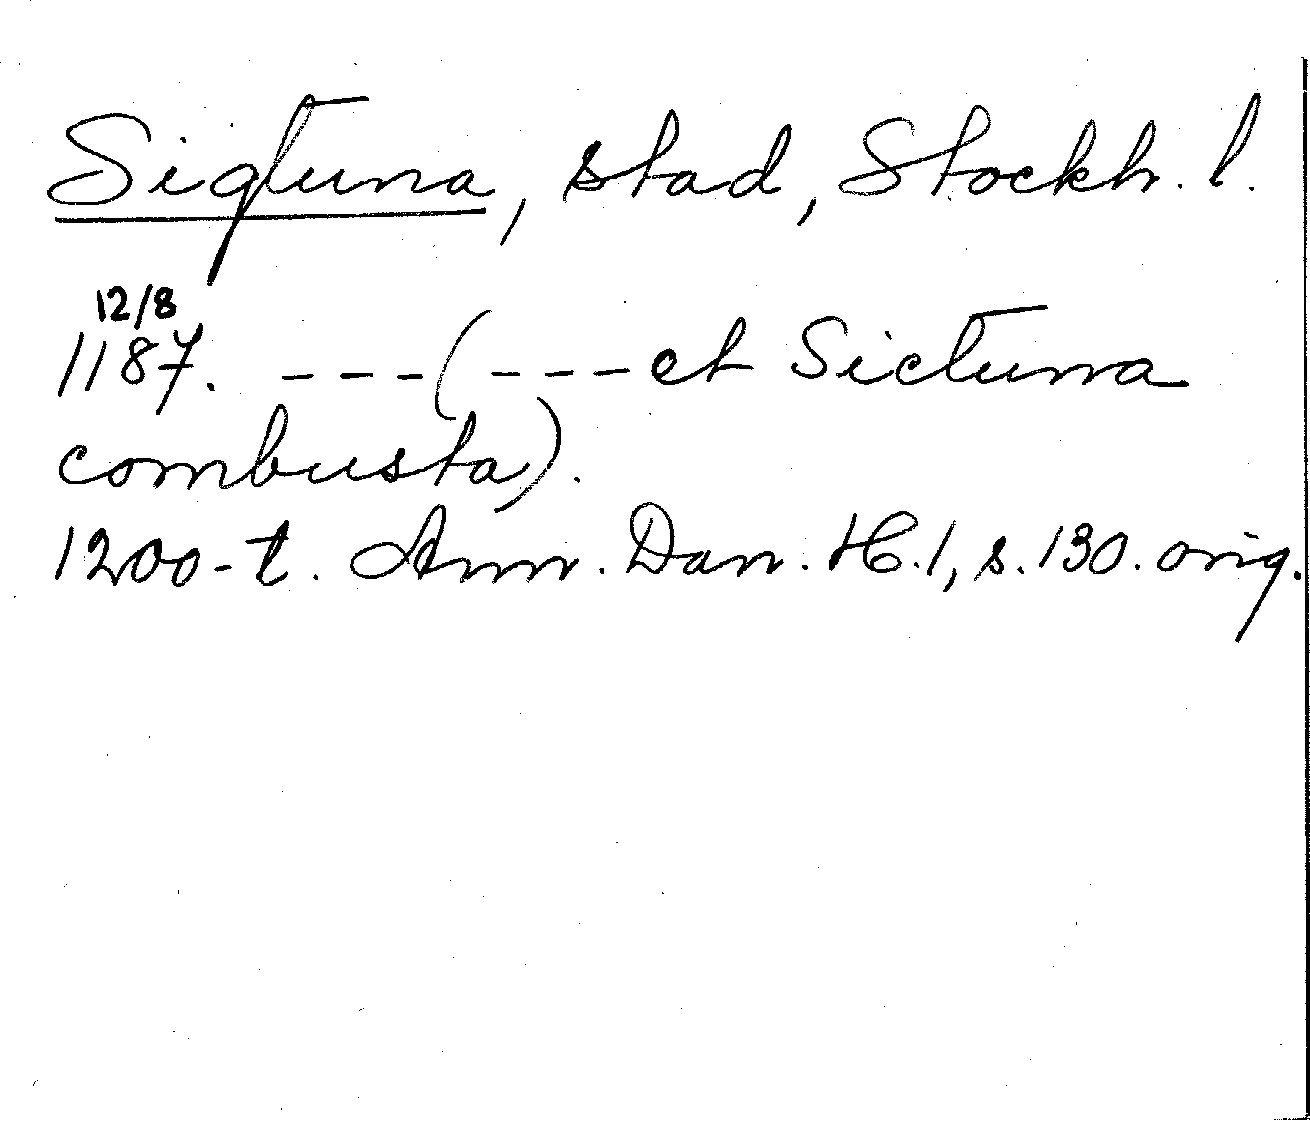 Sigtuna, stad, Stockh. l.
12/8
1187. ---(---et Sictuna
combusta).
1200-t. Ann. Dan. H.1, s.130. orig.